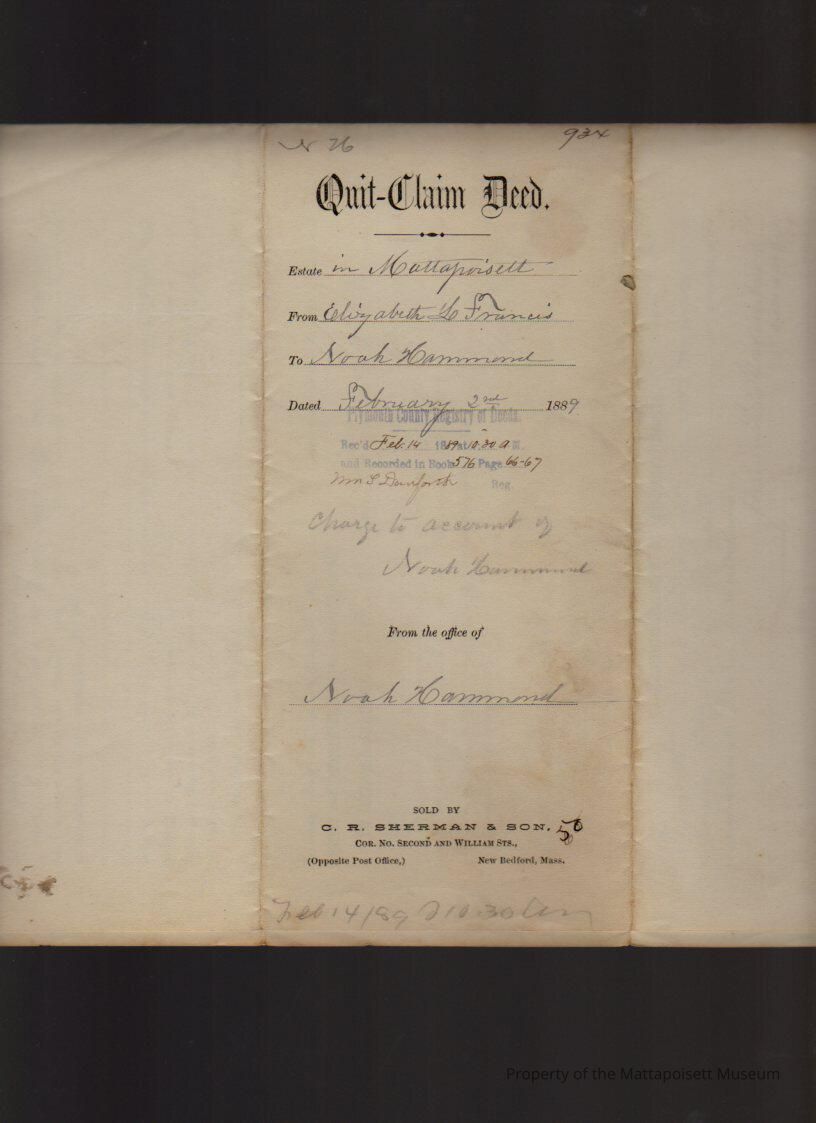 N 76
934
Quit-Claim Deed.
Estate in Mattapoisett
From Elizabeth L Francis
To Noah Hammond
Dated February 2nd 1889.
Plymouth County Registry of Deeds.
Rec'd Feb. 14 1889 at 10.30 A M.
and Recorded in Book 576 Page 66-67
Wm S Danforth Reg.
Charge to account of
Noah Hammond
From the office of
Noah Hammond
SOLD BY
C. R. SHERMAN & SON,
50
COR. NO. SECOND AND WILLIAM STS.,
(Opposite Post Office,) New Bedford, Mass.
Feb 14/89 10.30 am
Property of the Mattapoisett Museum